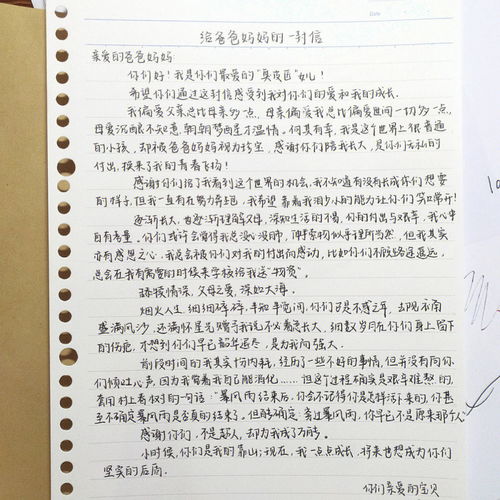 Date
给爸爸妈妈的一封信
亲爱的爸爸妈妈
你们好!我是你们最爱的"真皮区"女儿!
希望你们通过这封信感受到我对你们的爱和我的成长.
我偏爱父亲总比母亲多一点,母亲偏爱我总比偏爱世间一切多一点.
母爱沉西长不知意,朝朝梦西是不温情。何其有幸,我是这个世界上很普通
的小孩,却被爸爸妈妈视为珍宝,感谢你们陪我长大,是你们无私的
付出,换来了我的青春飞扬!
感谢你们给了我看到这个世界的机会,我不知道有没有长成你们想要
的样子,但我一直在努力奔跑,我希望靠着我泪步小的能力让你们笑口常开!
逐渐长大,也逐渐理解父母,深知生活的不易,你们的付出与艰辛,我心中
自有考量。你们或许会觉得我总没心没肺,伸手索物似乎理所当然,但我其实
亦有感恩之心.我总会被你们对我的付出而感动,比如你们不顾路途遥远,
总会在我有需要的时候来学校给我送"物资"。
舔犊情深,父母之爱,深如大海.
烟火人生,细细碎碎,半知半觉间,你们已是不惑之年,去风衣南
盛满风沙,还满怀星光赠予我说不必着急长大,细数岁月在你们身上留下
的伤疤,才想到你们早已韶华逝尽,是力我而强大。
前段时间的我其实伤内耗,经历了一些不好的事情,但并没有向你
们倾吐心声,因为我觉着我自己能消化……但这个过程确实是艰辛难熬的,
套用村上春树的一句话:"暴风雨结束后,你会不记得你是怎样活下来的,你甚
至不确定暴风雨是否真的结束了。但能确定:穿过暴风雨,你早已不是原来那个人"
感谢你们,不是超人,却为我成了万能。
小时候,你们是我的靠山;现在,我一点点成长,将来也想成为你们
坚实的后盾.
你们亲爱的宝贝